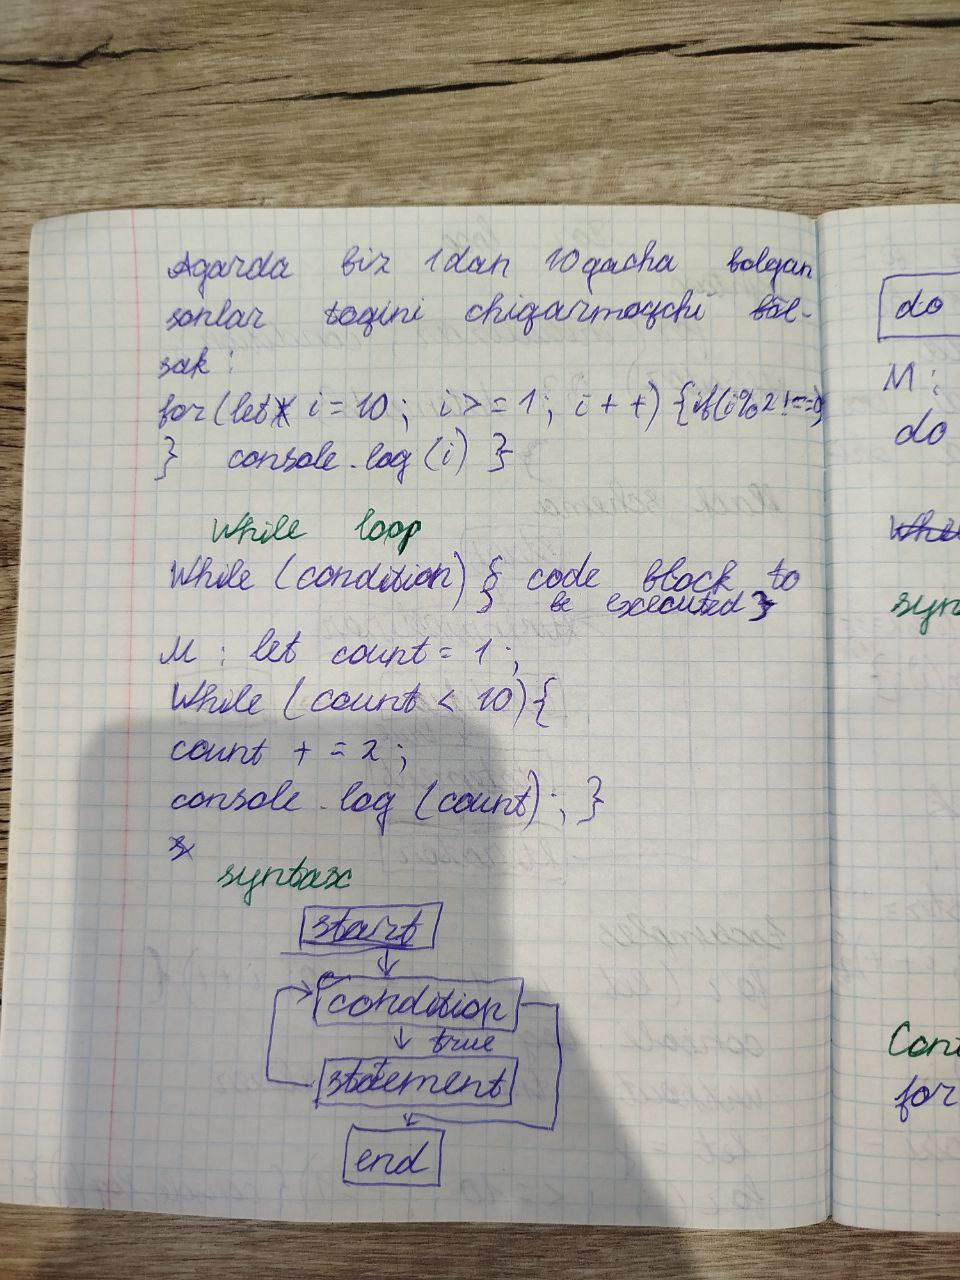 Agarda biz 1dan 10gacha bolgan
sonlar toqini chiqarmoqchi bol-
sak :
for(let i = 10 ; i >= 1 ; i + +) {if(i%2!==0)
} console.log(i) }
While loop
While (condition) { code block to
be executed }
M : let count = 1 ;
While (count < 10) {
count + = 2 ;
console.log (count) ; }
syntax
start
condition
true
statement
end
do
M :
do
synt
Cont
for